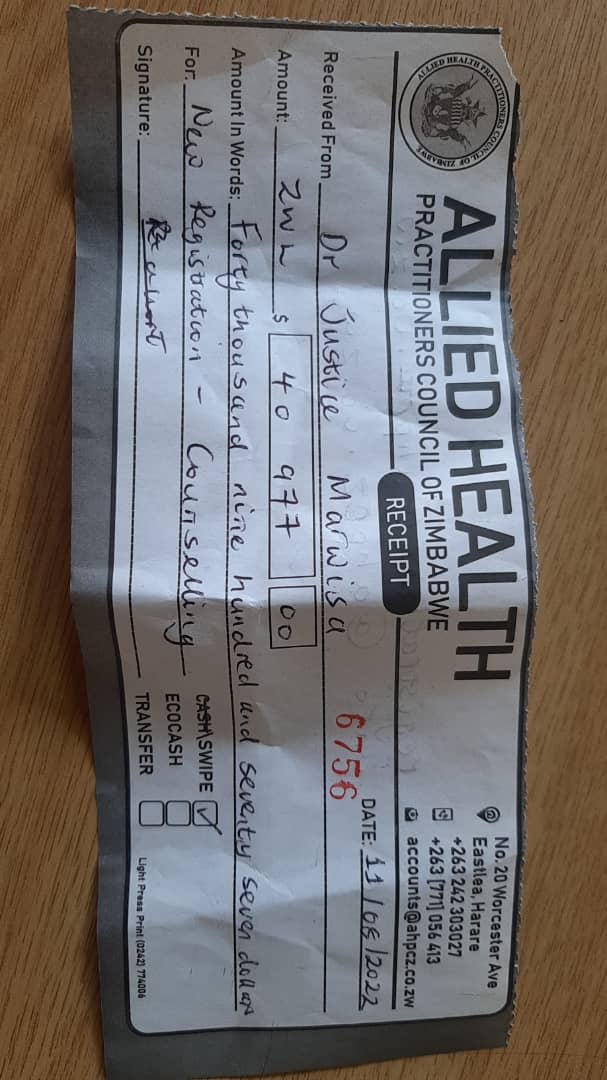 ALLIED HEALTH PRACTITIONERS COUNCIL OF ZIMBABWE
ALLIED HEALTH
PRACTITIONERS COUNCIL OF ZIMBABWE
No. 20 Worcester Ave
Eastlea, Harare
+263 242 303027
+263 (771) 056 413
accounts@ahpcz.co.zw
RECEIPT
DATE: 11/05/2022
6756
Received From Dr Justice Marwisa
Amount: ZWL $ 40 977 00
Amount In Words: Forty thousand nine hundred and seventy seven dollars
For: New Registration - Counselling
CASH\SWIPE
ECOCASH
TRANSFER
Signature:
Light Press Print (0242) 774006